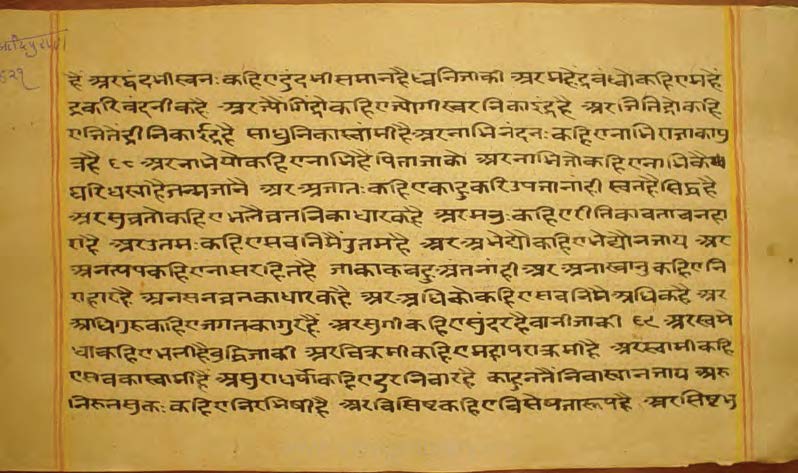 आदिपुराण
६२१
हैं अर दुंदभीस्वनः कहिए दुंदभीसमान है ध्वनि जाकी अर महेंद्रवंद्यो कहिए महें
द्र करि वंदनीक है अर योगिंद्रो कहिए योगीस्वरनिका इंद्र है अर जितिंद्रो कहि
ए जितेंद्रीनिका इंद्र है साधुनिका स्वामी है अर नाभिनंदनः कहिए नाभिराजाका पु
त्र है ६८ अर नाभेयो कहिए नाभि हैं पिता जाको अर नाभिजो कहिए नाभिकै
घरि भया है जन्म जानै अर अजातः कहिए काहुकरि उपजा नाही स्वतहै सिद्ध है
अर सुव्रतो कहिए भलै व्रतनिका धारक है अर मनुः कहिए रीतिका वतावनहा
रा है अर उतमः कहिए सबनिमैं उतम है अर अभेद्यो कहिए भेद्यौ न जाय अर
अनत्ययः कहिए नासरहित है जाका कबहु अंत नांही अर अनास्वानु कहिए नि
राहार है अनसनव्रतका धारक है अर अधिको कहिए सबनिमै अधिक है अर
अधिगुरु कहिए जगतका गुर हैं अर सुगी कहिए सुंदर है वानी जाकी ६९ अर सुमे
धा कहिए भली है बुद्धि जाकी अर विक्रमी कहिए महापराक्रमी है अर स्वामी कहि
ए सबका स्वामी हैं अर दुराधर्षो कहिए दुरनिवार है काहुनतैं निवार्या न जाय अरु
निरुतसुकः कहिए निरभिलाषी है अर विसिष्ट कहिए विसेषतारूप है अर सिष्टभु